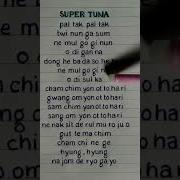 SUPER TUNA
pal tak pal tak
twi nun ga sum
ne mul go gi nun
o di gan na
dong he ba da so he
ne mul go gi n
o di sul ka
cham chim yon ot to ha ri
gwang om yon ot to ha ri
sam chi yon ot to ha ri
sang om yon ot to ha ri
ne nak sit de rul mu ro ju o
gut te ma chim
cham chi ne ge
hyung, hyung
na jom de ryo ga yo